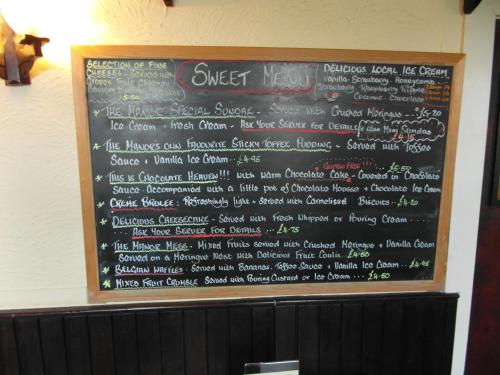 SELECTION OF FINE
CHEESES - SERVED WITH
GRAPES FRUIT CHUTNEY
£5.50
SWEET MENU
DELICIOUS LOCAL ICE CREAM
Vanilla - Strawberry - Honeycomb
Strawberry - Raspberry Ripple
Coconut - Chocolate
THE MANOR SPECIAL SUNDAE - Served with Crushed Meringue -
Ice Cream - Fresh Cream - ASK YOUR SERVER FOR DETAILS
£4.75
THE MANOR'S OWN FAVOURITE STICKY TOFFEE PUDDING - Served with Toffee
Sauce + Vanilla Ice Cream .. £4.95
GLUTEN FREE!!! £5.50
THIS IS CHOCOLATE HEAVEN!!! with warm Chocolate Cake - Covered in Chocolate
Sauce - Accompanied with a little pot of Chocolate Mousse + Chocolate Ice Cream
CREME BRULEE: Refreshingly light - Served with Caramelised Biscuits .. £4.20
DELICIOUS CHEESECAKE - Served with Fresh Whipped or Pouring Cream ....
.... ASK YOUR SERVER FOR DETAILS ... £4.75
THE MANOR MESS - Mixed Fruits served with Crushed Meringue + Vanilla Cream
Served on a Meringue Nest with Delicious Fruit Coulis £4.50
BELGIAN WAFFLES - Served with Bananas, Toffee Sauce + Vanilla Ice Cream ... £4.95
MIXED FRUIT CRUMBLE Served with Pouring Custard or Ice Cream .... £4.50